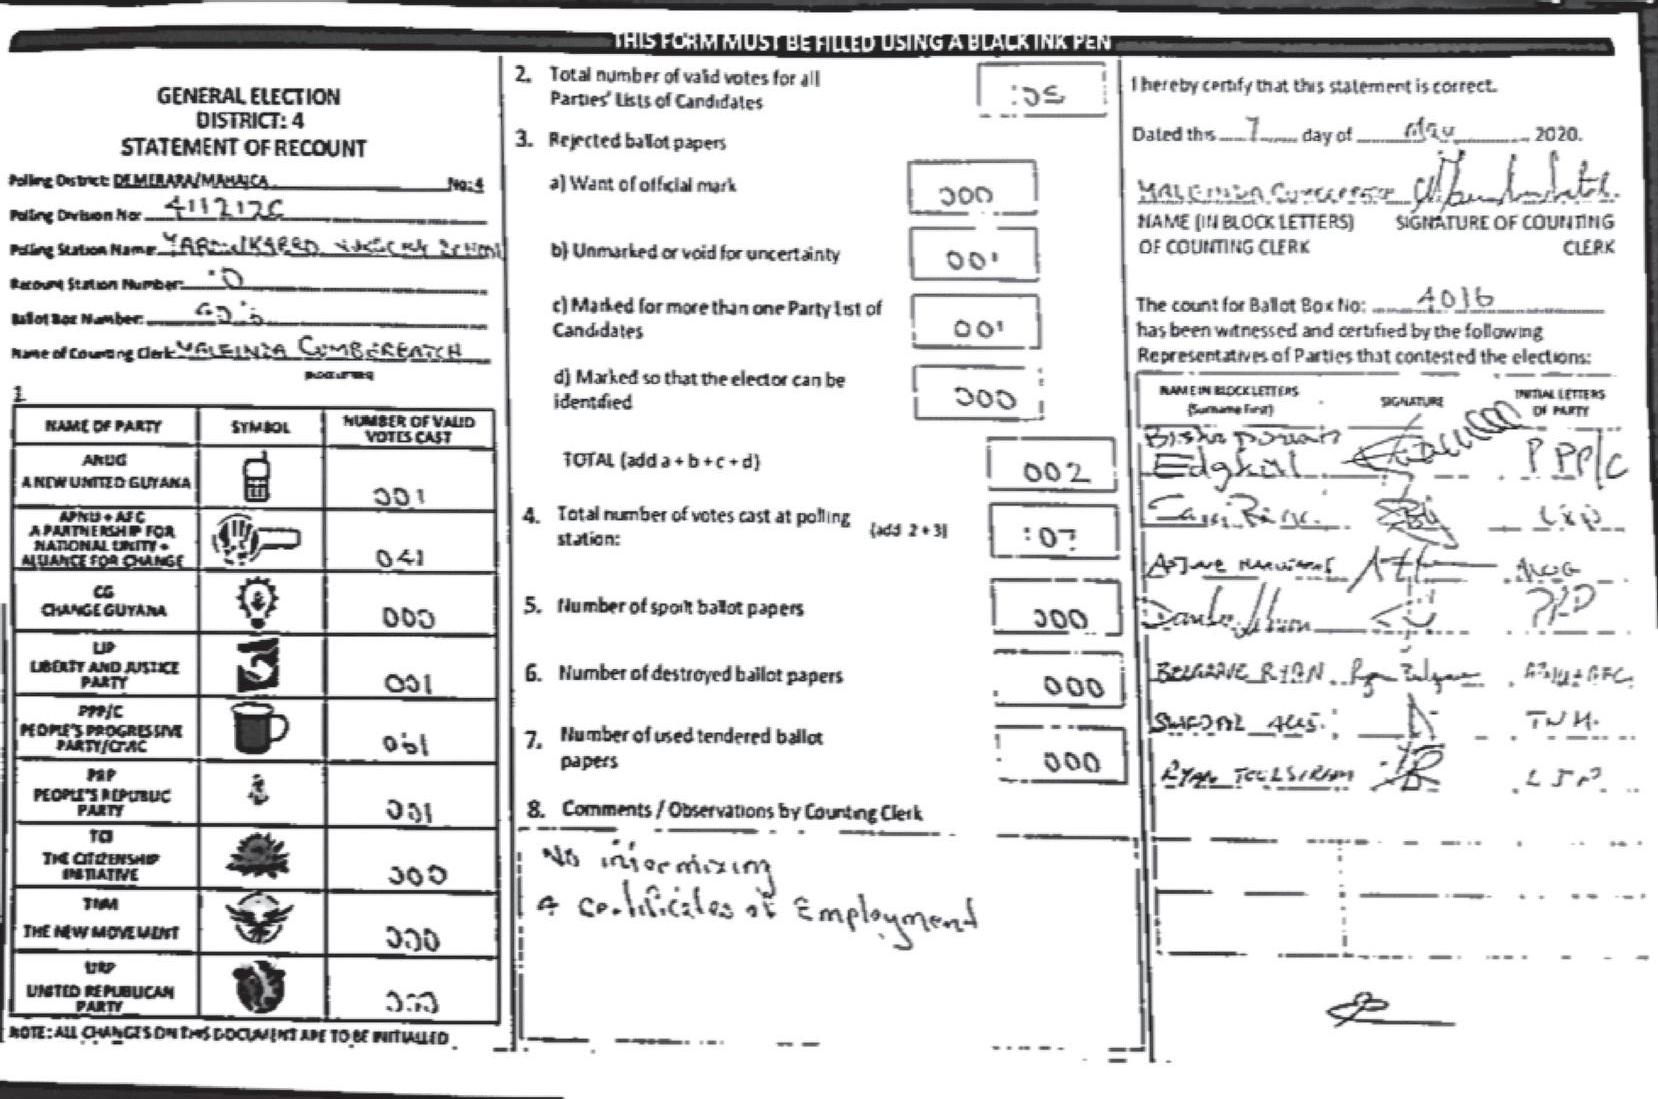 THIS FORM MUST BE FILLED USING A BLACK INK PEN
GENERAL ELECTION
DISTRICT: 4
STATEMENT OF RECOUNT
Polling District: DEMERARA/MAHAICA No: 4
Polling Division No: 411212C
Polling Station Name: SCHOOL
Recount Station Number:
Ballot Box Number:
Name of Counting Clerk: CUMBERBATCH
1.
NAME OF PARTY SYMBOL NUMBER OF VALID VOTES CAST
ANUG
A NEW UNITED GUYANA 001
APNU + AFC
A PARTNERSHIP FOR
NATIONAL UNITY +
ALLIANCE FOR CHANGE 041
CG
CHANGE GUYANA 000
LJP
LIBERTY AND JUSTICE
PARTY 001
PPP/C
PEOPLE'S PROGRESSIVE
PARTY/CIVIC 061
PRP
PEOPLE'S REPUBLIC
PARTY 001
TCI
THE CITIZENSHIP
INITIATIVE 000
TNM
THE NEW MOVEMENT 000
URP
UNITED REPUBLICAN
PARTY 000
NOTE: ALL CHANGES ON THIS DOCUMENT ARE TO BE INITIALLED
2. Total number of valid votes for all
Parties' Lists of Candidates
3. Rejected ballot papers
a) Want of official mark 000
b) Unmarked or void for uncertainty 001
c) Marked for more than one Party List of
Candidates 001
d) Marked so that the elector can be
identified 000
TOTAL (add a + b + c + d) 002
4. Total number of votes cast at polling
station: (add 2 + 3) 107
5. Number of spoilt ballot papers 000
6. Number of destroyed ballot papers 000
7. Number of used tendered ballot
papers 000
8. Comments / Observations by Counting Clerk
No intermixing
4 certificates of Employment
I hereby certify that this statement is correct.
Dated this 7 day of May 2020.
CUMBERBATCH
NAME (IN BLOCK LETTERS) SIGNATURE OF COUNTING
OF COUNTING CLERK CLERK
The count for Ballot Box No: 4016
has been witnessed and certified by the following
Representatives of Parties that contested the elections:
NAME IN BLOCK LETTERS SIGNATURE INITIAL LETTERS
(Surname First) OF PARTY
Edghill PPP/C
ANUG
BELGRAVE RYAN APNU+AFC
TNM
RYAN TOOLSIRAM LJP